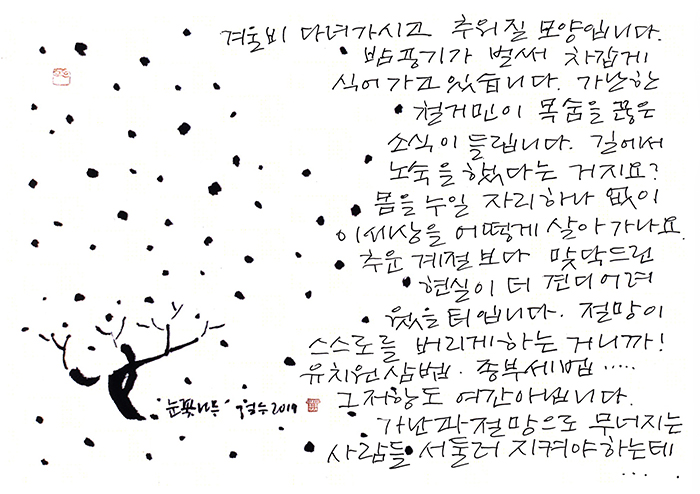 겨울비 다녀가시고 추워질 모양입니다.
밤공기가 벌써 차갑게
식어가고 있습니다. 가난한
철거민이 목숨을 끊은
소식이 들립니다. 길에서
노숙을 했다는 거지요?
몸을 누일 자리하나 없이
이세상을 어떻게 살아가나요.
추운 계절보다 맞닥드린
현실이 더 견디어려
웠을 터입니다. 절망이
스스로를 버리게하는 거니까!
유치원삼법·종부세법.....
그저항도 여간아닙니다.
가난과절망으로 무너지는
사람들 서둘러 지켜야하는데
....
'눈꽃나무' 철수 2019